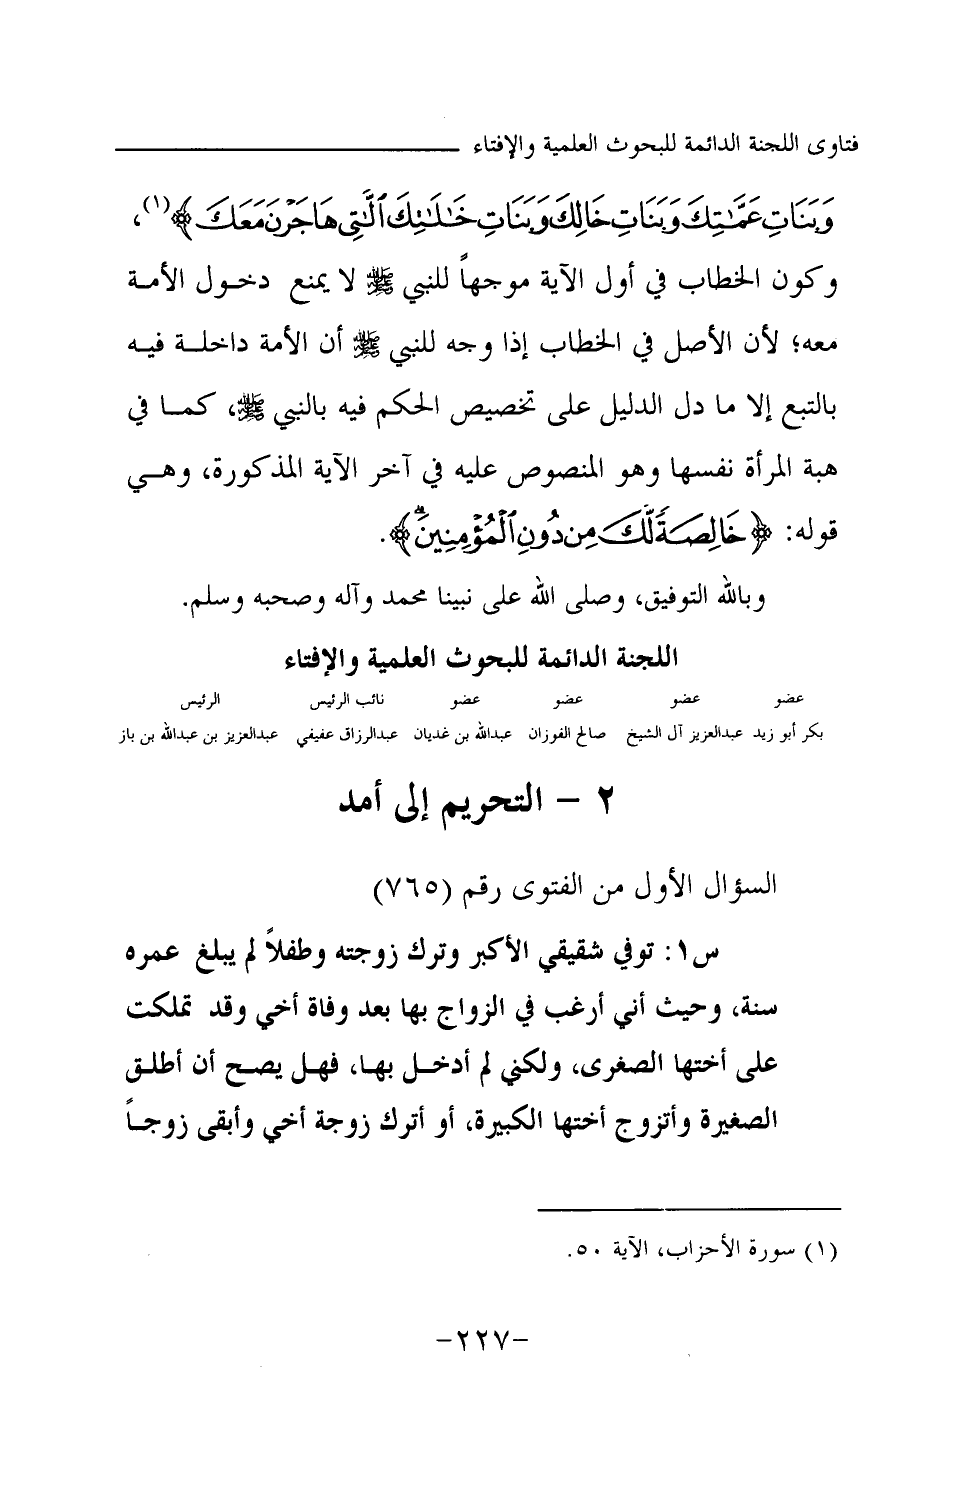 فتاوى اللجنة الدائمة للبحوث العلمية والإفتاء
وَبَنَاتِ عَمَّٰتِكَ وَبَنَاتِ خَالِكَ وَبَنَاتِ خَٰلَٰتِكَ ٱلَّٰتِى هَاجَرْنَ مَعَكَ ﴾(١)،
وكون الخطاب في أول الآية موجهاً للنبي ﷺ لا يمنع دخول الأمة
معه؛ لأن الأصل في الخطاب إذا وجه للنبي ﷺ أن الأمة داخلة فيه
بالتبع إلا ما دل الدليل على تخصيص الحكم فيه بالنبي ﷺ، كما في
هبة المرأة نفسها وهو المنصوص عليه في آخر الآية المذكورة، وهي
قوله: ﴿ خَالِصَةً لَّكَ مِن دُونِ ٱلْمُؤْمِنِينَۗ ﴾.
وبالله التوفيق، وصلى الله على نبينا محمد وآله وصحبه وسلم.
اللجنة الدائمة للبحوث العلمية والإفتاء
عضو عضو عضو عضو نائب الرئيس الرئيس
بكر أبو زيد عبدالعزيز آل الشيخ صالح الفوزان عبدالله بن غديان عبدالرزاق عفيفي عبدالعزيز بن عبدالله بن باز
٢ - التحريم إلى أمد
السؤال الأول من الفتوى رقم (٧٦٥)
س١: توفي شقيقي الأكبر وترك زوجته وطفلاً لم يبلغ عمره
سنة، وحيث أني أرغب في الزواج بها بعد وفاة أخي وقد تملكت
على أختها الصغرى، ولكني لم أدخل بها، فهل يصح أن أطلق
الصغيرة وأتزوج أختها الكبيرة، أو أترك زوجة أخي وأبقى زوجاً
(١) سورة الأحزاب، الآية ٥٠.
-٢٢٧-